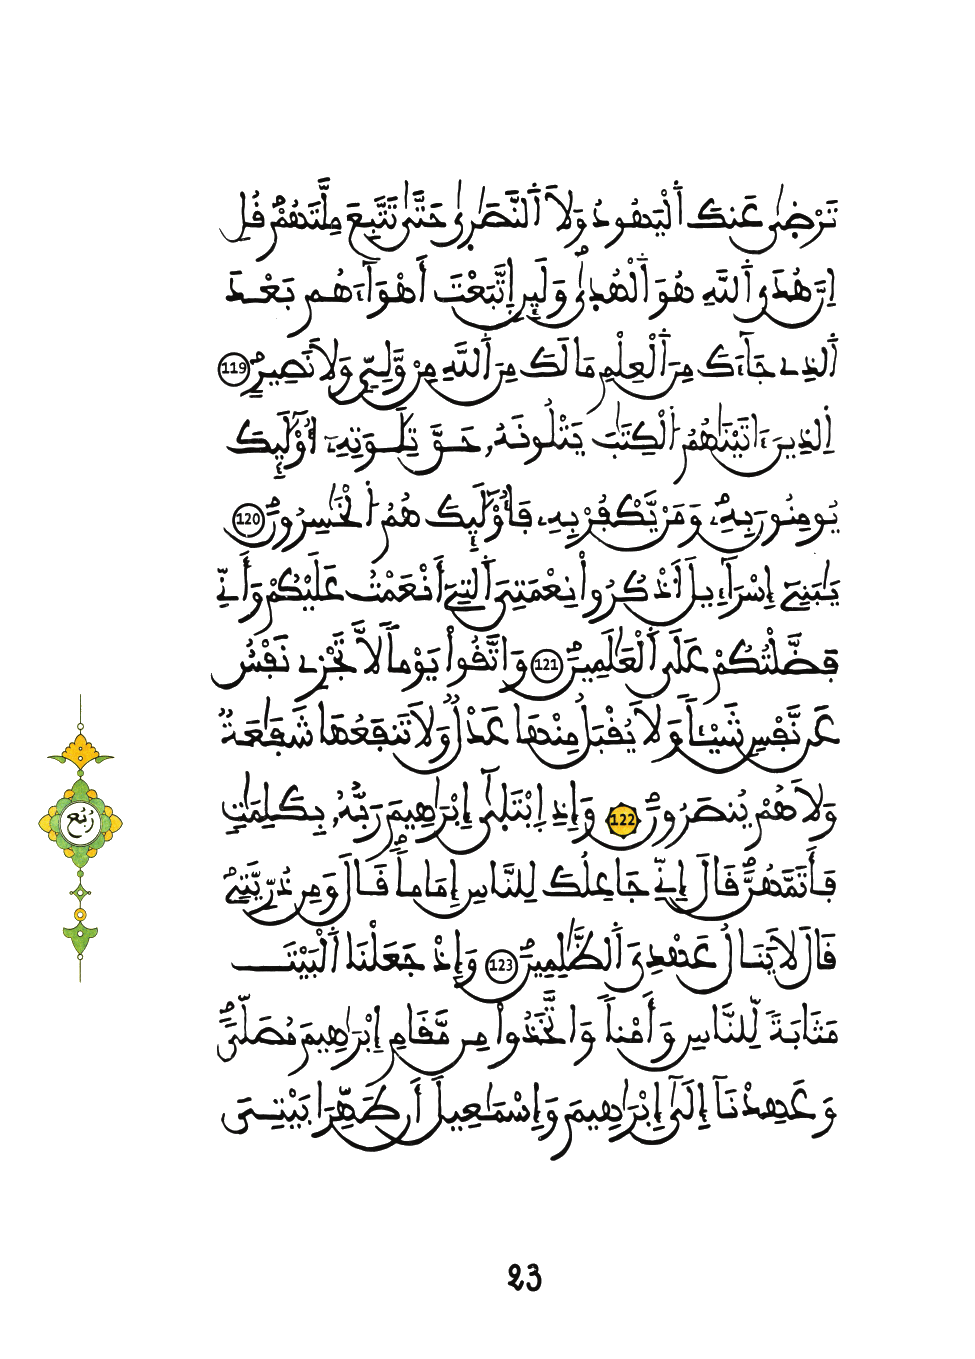 تَرْضىٰ عَنكَ اَ۬لْيَهُودُ وَلَا اَ۬لنَّصَٰر۪يٰ حَتَّىٰ تَتَّبِعَ مِلَّتَهُمْۖ قُلِ
اِنَّ هُدَى اَ۬للَّهِ هُوَ اَ۬لْهُد۪يٰۖ وَلَئِنِ اِ۪تَّبَعْتَ أَهْوَآءَهُم بَعْدَ
اَ۬لذِے جَآءَكَ مِنَ اَ۬لْعِلْمِ مَا لَكَ مِنَ اَ۬للَّهِ مِنْ وَّلِيّٖ وَلَا نَصِيرٍۖ 119
اِ۬لذِينَ ءَاتَيْنَٰهُمُ اُ۬لْكِتَٰبَ يَتْلُونَهُۥ حَقَّ تِلَٰوَتِهِۦٓ أُوْلَٰٓئِكَ
يُومِنُونَ بِهِۦۖ وَمَنْ يَّكْفُرْ بِهِۦ فَأُوْلَٰٓئِكَ هُمُ اُ۬لْخَٰسِرُونَۖ 120
يَٰبَنِےٓ إِسْرَآءِيلَ اَ۟ذْكُرُواْ نِعْمَتِيَ اَ۬لتِےٓ أَنْعَمْتُ عَلَيْكُمْ وَأَنِّے
فَضَّلْتُكُمْ عَلَى اَ۬لْعَٰلَمِينَۖ 121 وَاتَّقُواْ يَوْماٗ لَّا تَجْزِے نَفْسٌ
عَن نَّفْسٖ شَيْـٔاٗ وَلَا يُقْبَلُ مِنْهَا عَدْلٞ وَلَا تَنفَعُهَا شَفَٰعَةٞ
وَلَا هُمْ يُنصَرُونَۖ 122 وَإِذِ اِ۪بْتَلَىٰٓ إِبْرَٰهِيمَ رَبُّهُۥ بِكَلِمَٰتٖ
فَأَتَمَّهُنَّۖ قَالَ إِنِّے جَاعِلُكَ لِلنَّاسِ إِمَاماٗۖ قَالَ وَمِن ذُرِّيَّتِےۖ
قَالَ لَا يَنَالُ عَهْدِيَ اَ۬لظَّٰلِمِينَۖ 123 وَإِذْ جَعَلْنَا اَ۬لْبَيْتَ
مَثَابَةٗ لِّلنَّاسِ وَأَمْناٗ وَاتَّخَذُواْ مِن مَّقَامِ إِبْرَٰهِيمَ مُصَلّيٗۖ
وَعَهِدْنَآ إِلَىٰٓ إِبْرَٰهِيمَ وَإِسْمَٰعِيلَ أَن طَهِّرَا بَيْتِيَ
رُبُع
23